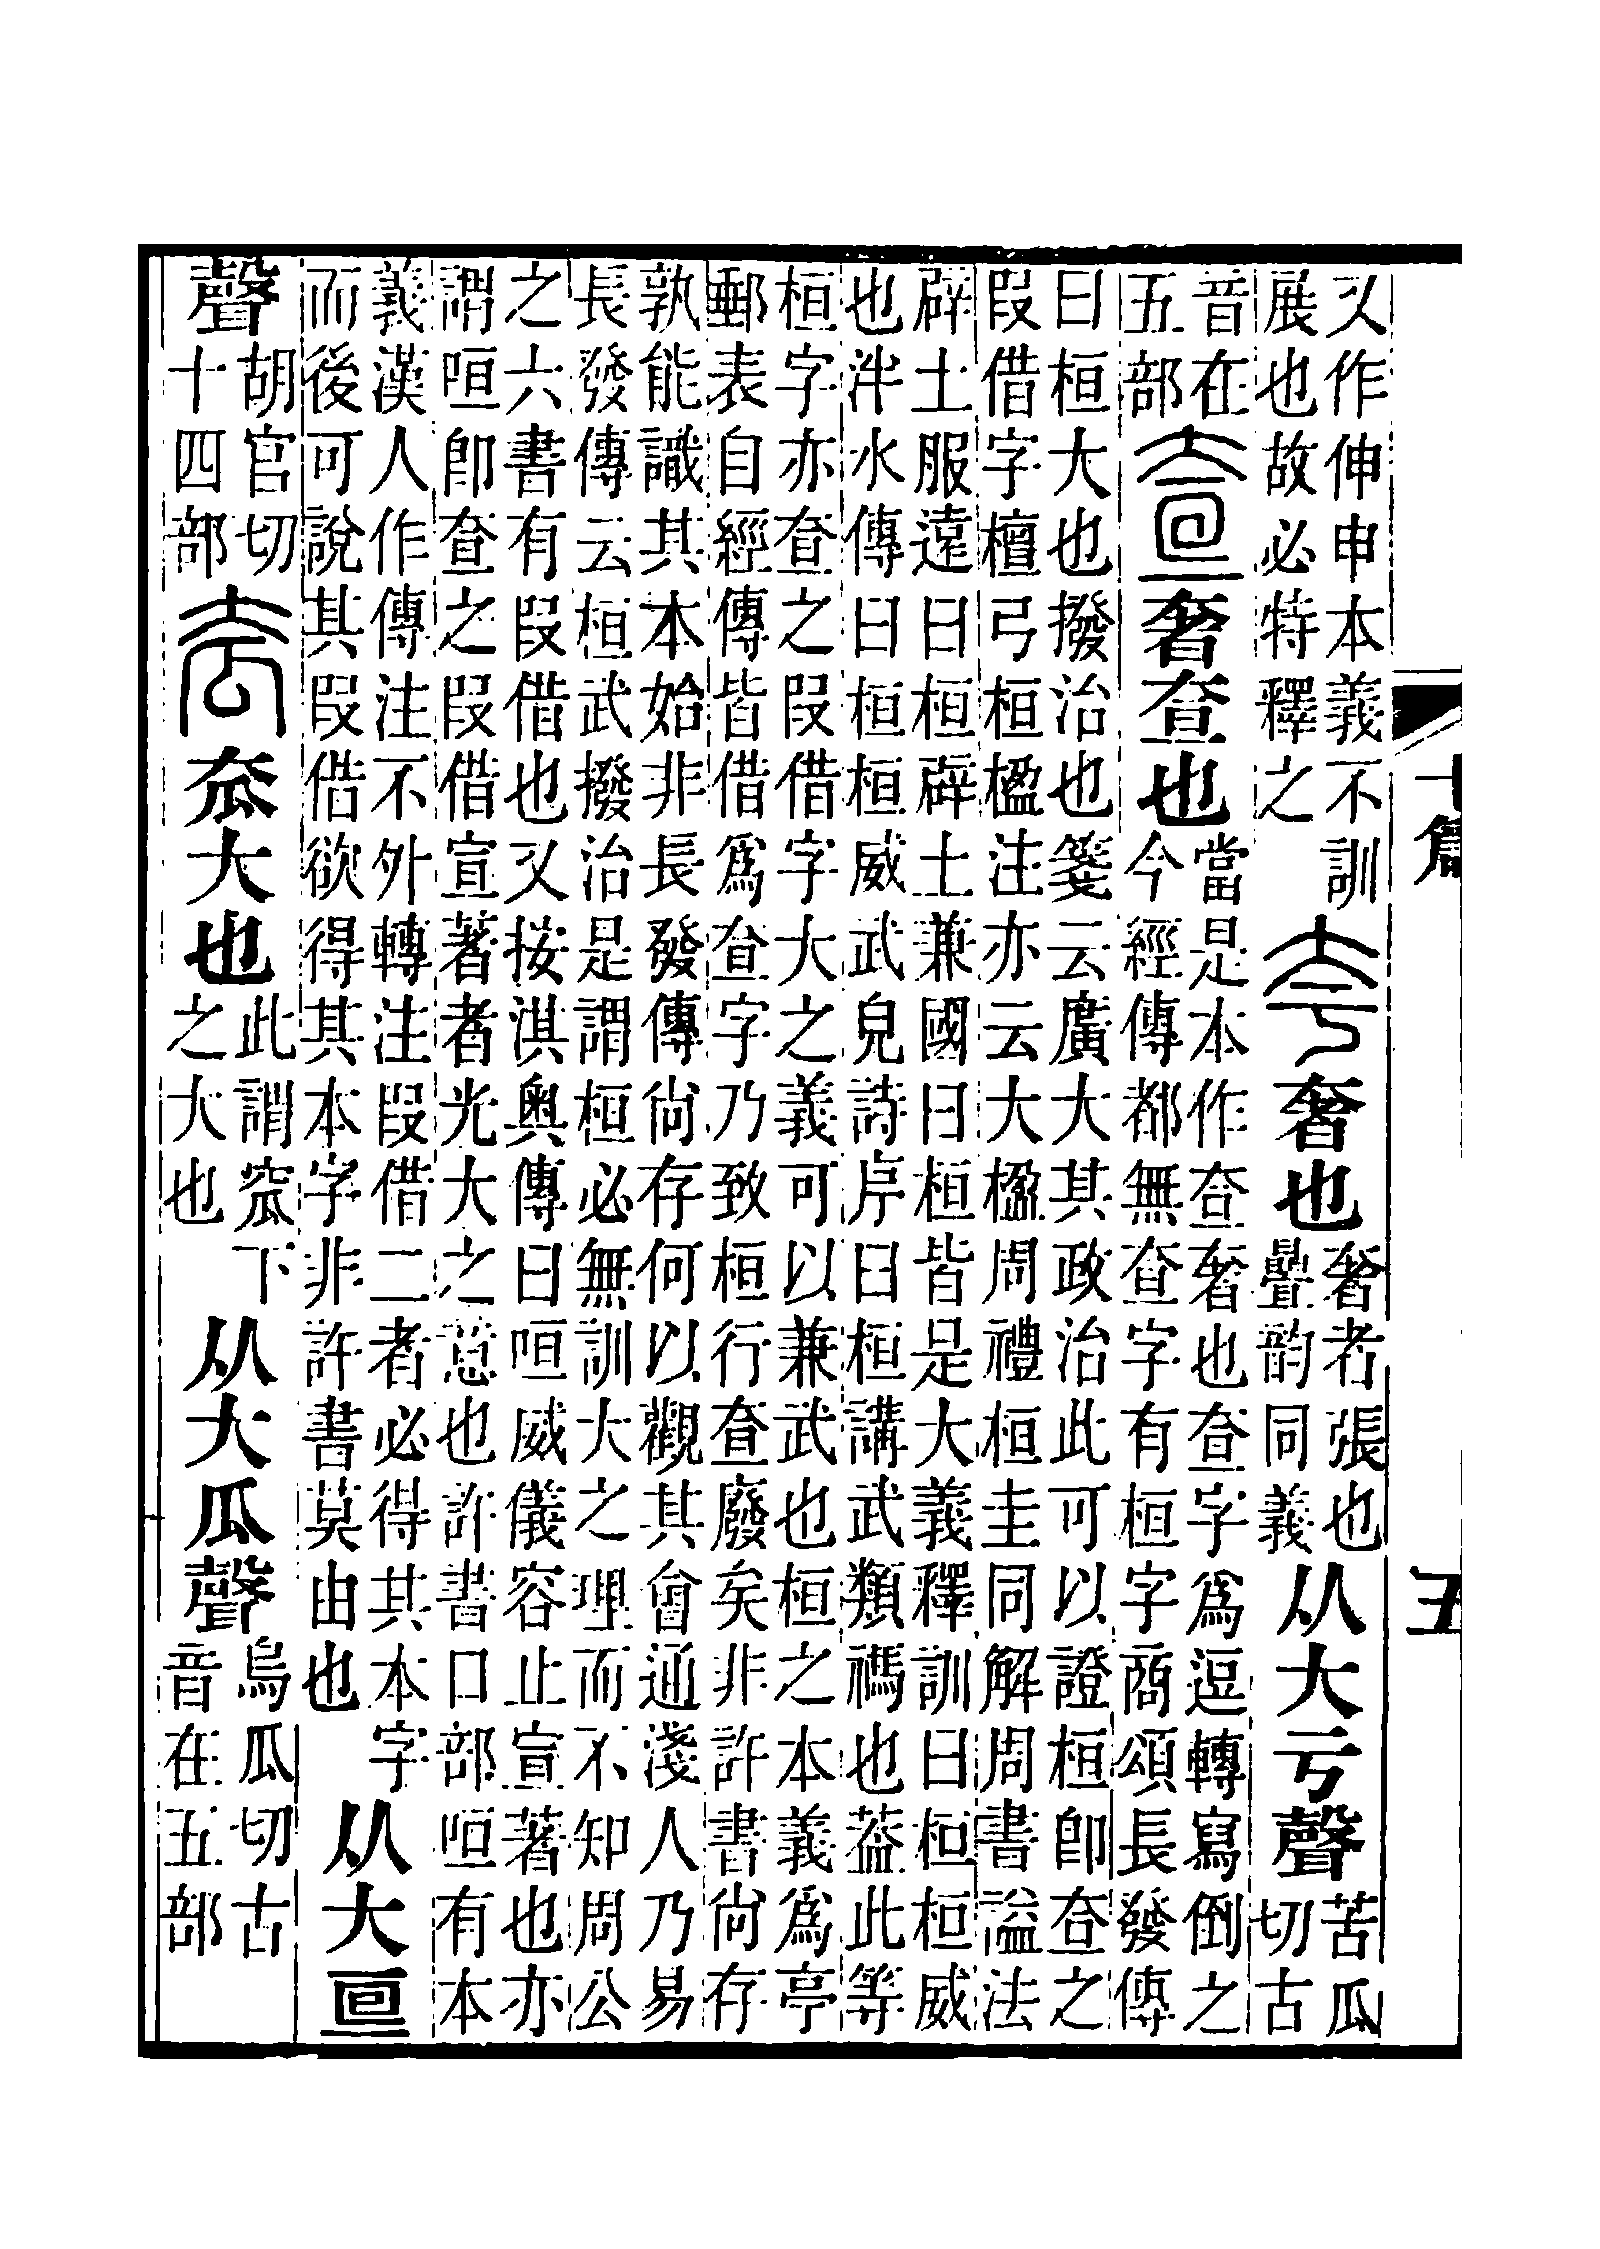 又作伸申本義不訓展也故必特釋之夸奢也奢者張也疊韵同義从大亏聲苦瓜切古
音在五部查奢查也當是本作查奢也查字爲逗轉寫倒之今經傳都無查字有桓字商頌長發傳
曰桓大也撥治也箋云廣大其政治此可以證桓卽查之叚借字檀弓桓楹注亦云大楹周禮桓圭同解周書謚法
辟土服遠曰桓辟土兼國曰桓皆是大義釋訓曰桓桓威也泮水傳曰桓桓威武皃詩序曰桓講武類禡也葢此等
桓字亦查之叚借字大之義可以兼武也桓之本義爲亭郵表自經傳皆借爲查字乃致桓行查廢矣非許書尙存
孰能識其本始非長發傳尙存何以觀其會通淺人乃易長發傳云桓武撥治是謂桓必無訓大之理而不知周公
之六書有叚借也又按淇奥傳曰咺威儀容止宣著也亦謂咺卽查之叚借宣著者光大之意也許書口部咺有本
義漢人作傳注不外轉注叚借二者必得其本字而後可說其叚借欲得其本字非許書莫由也从大亘
聲胡官切十四部夻大也此謂窊下之大也从大瓜聲烏瓜切古音在五部
十篇
五